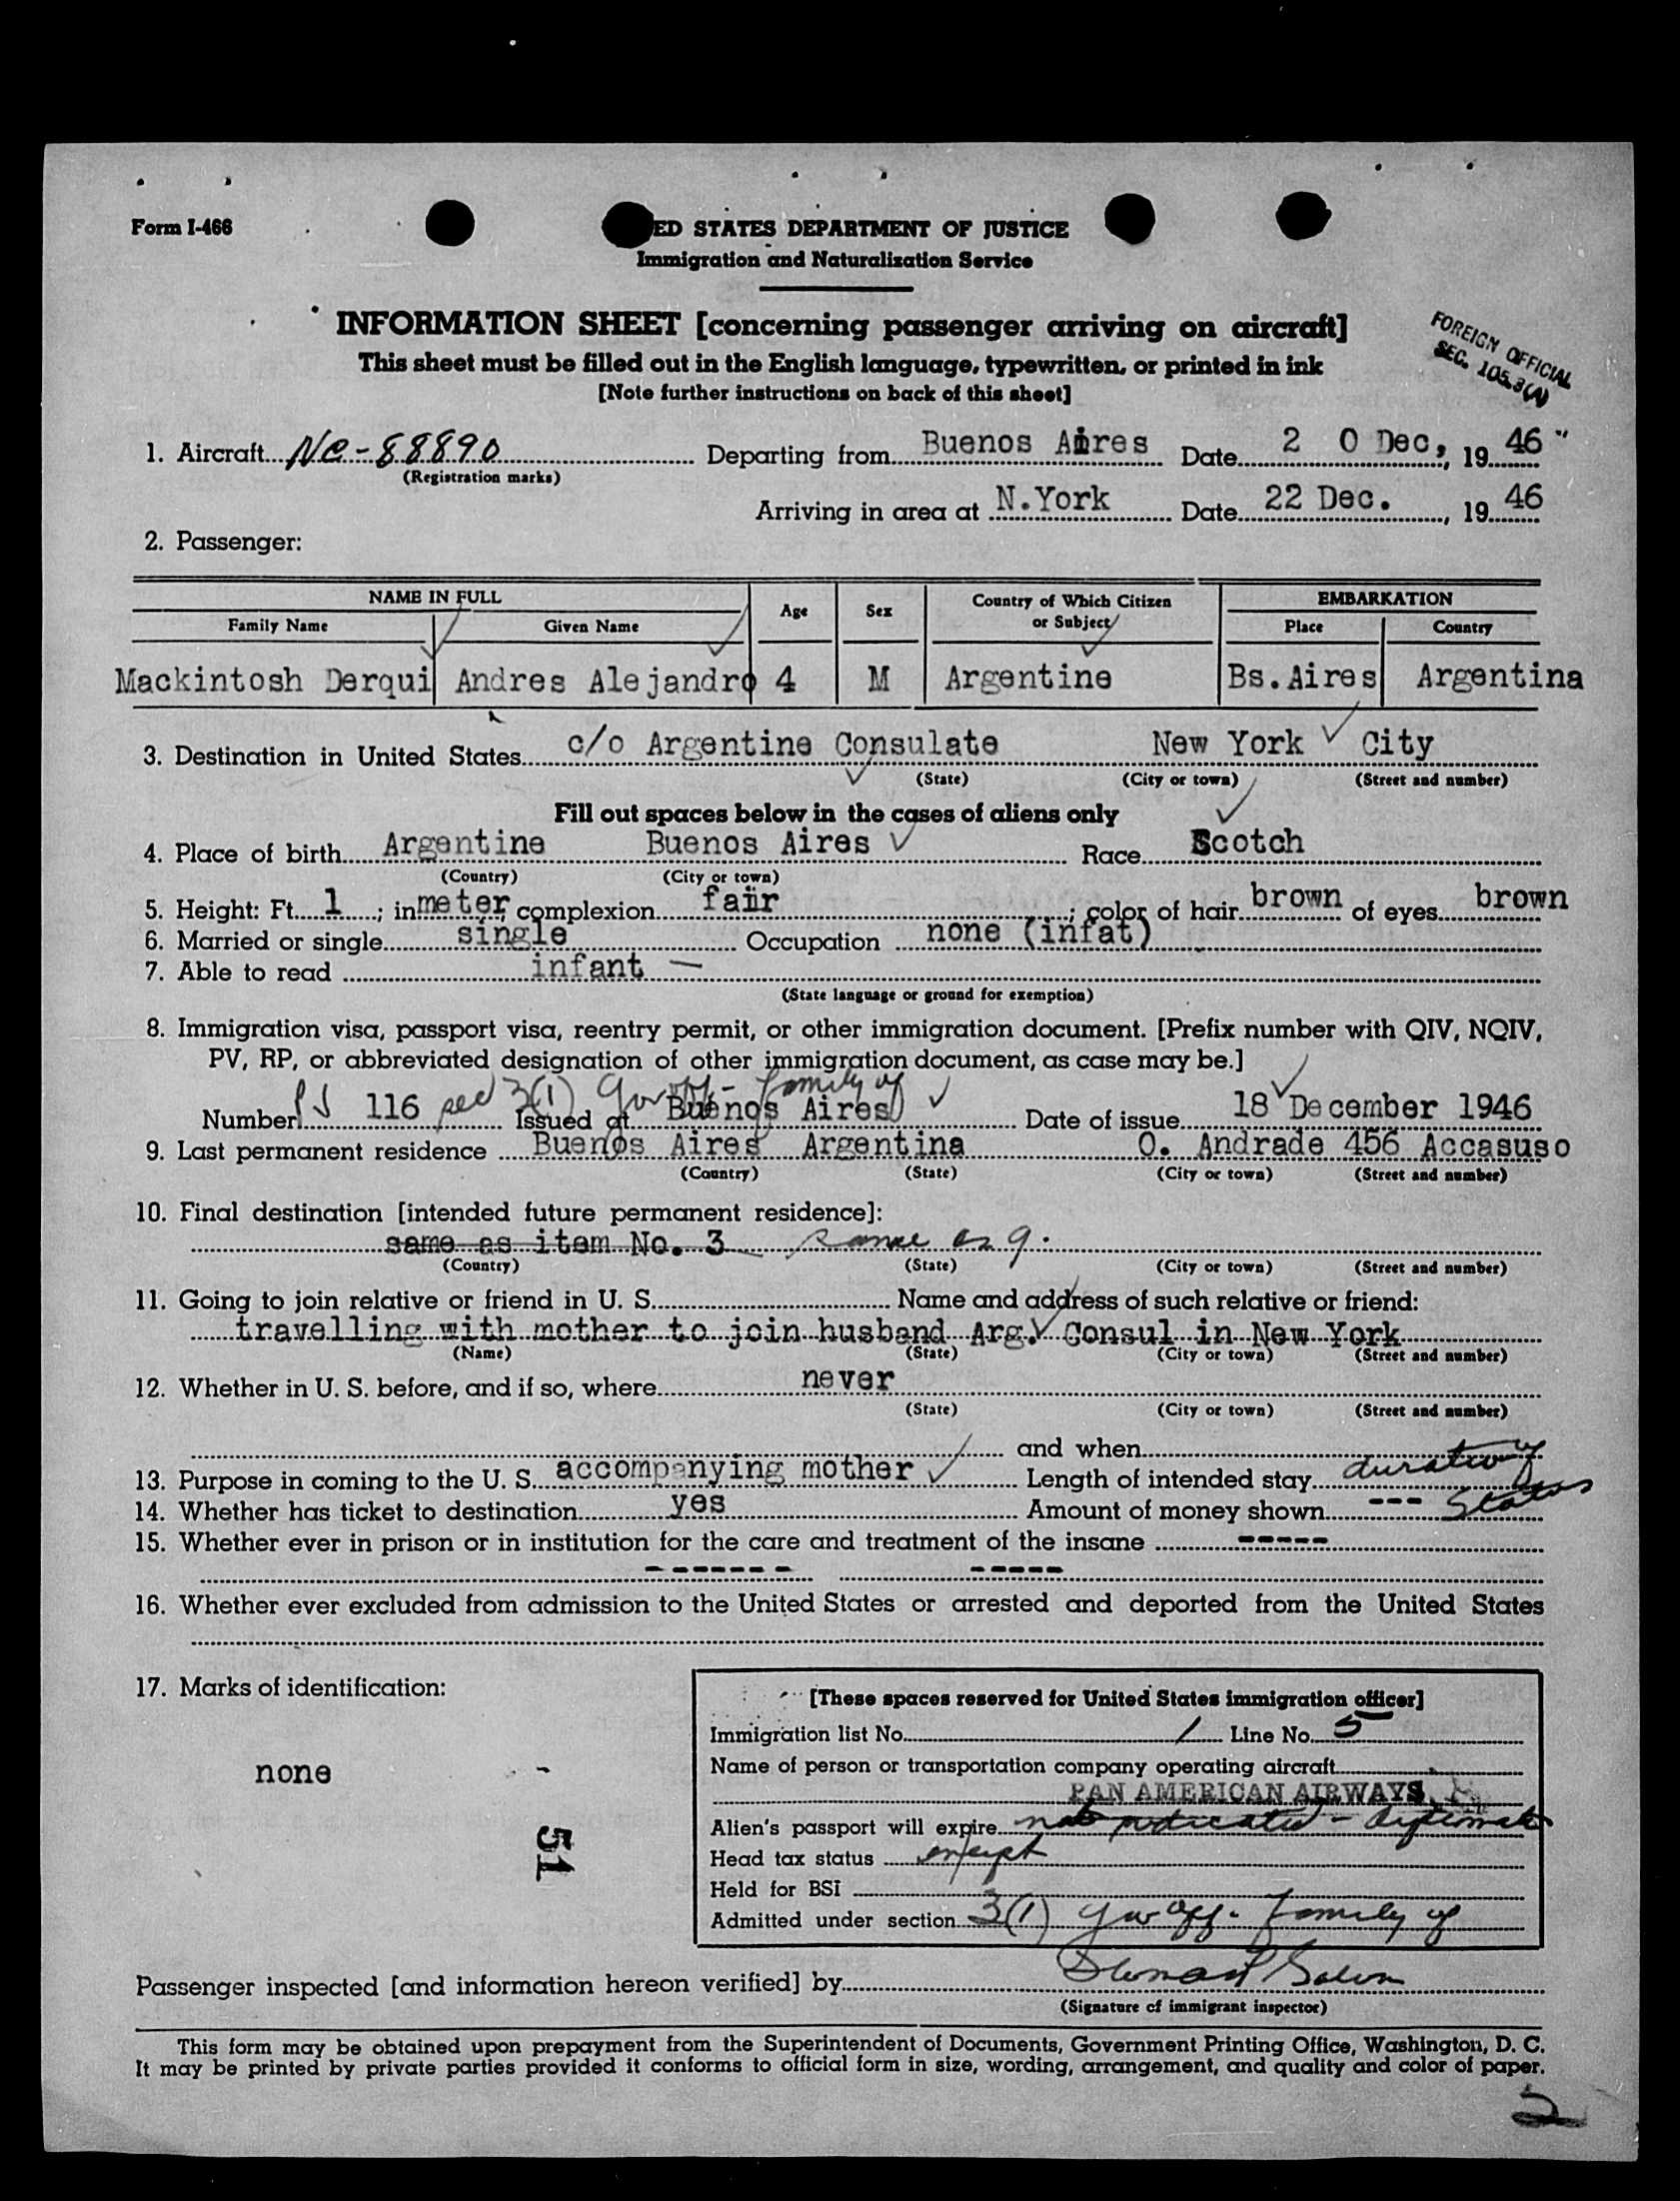 Form I-466
ED STATES DEPARTMENT OF JUSTICE
Immigration and Naturalization Service
INFORMATION SHEET [concerning passenger arriving on aircraft]
This sheet must be filled out in the English language, typewritten, or printed in ink
[Note further instructions on back of this sheet]
FOREIGN OFFICIAL
SEC. 105.3(A)
1. Aircraft NC-88890 Departing from Buenos Aires Date 2 0 Dec, 19 46
(Registration marks)
Arriving in area at N.York Date 22 Dec. , 19 46
2. Passenger:
NAME IN FULL Age Sex Country of Which Citizen or Subject EMBARKATION
Family Name Given Name Place Country
Mackintosh Derqui Andres Alejandro 4 M Argentine Bs.Aires Argentina
3. Destination in United States c/o Argentine Consulate New York City
(State) (City or town) (Street and number)
Fill out spaces below in the cases of aliens only
4. Place of birth Argentine Buenos Aires Race Scotch
(Country) (City or town)
5. Height: Ft. 1 ; in meter ; complexion fair ; color of hair brown of eyes brown
6. Married or single single Occupation none (infat)
7. Able to read infant —
(State language or ground for exemption)
8. Immigration visa, passport visa, reentry permit, or other immigration document. [Prefix number with QIV, NQIV,
PV, RP, or abbreviated designation of other immigration document, as case may be.]
sec 3(1) Gov off - family of
Number 116 Issued at Buenos Aires Date of issue 18 December 1946
9. Last permanent residence Buenos Aires Argentina O. Andrade 456 Accasuso
(Country) (State) (City or town) (Street and number)
10. Final destination [intended future permanent residence]:
same as item No. 3 same as 9.
(Country) (State) (City or town) (Street and number)
11. Going to join relative or friend in U. S. Name and address of such relative or friend:
travelling with mother to join husband Arg. Consul in New York
(Name) (State) (City or town) (Street and number)
12. Whether in U. S. before, and if so, where never
(State) (City or town) (Street and number)
and when
13. Purpose in coming to the U. S. accompanying mother Length of intended stay duration of
14. Whether has ticket to destination yes Amount of money shown --- Status
15. Whether ever in prison or in institution for the care and treatment of the insane -----
------- -----
16. Whether ever excluded from admission to the United States or arrested and deported from the United States
17. Marks of identification:
none
51
[These spaces reserved for United States immigration officer]
Immigration list No. 1 Line No. 5
Name of person or transportation company operating aircraft
PAN AMERICAN AIRWAYS,
Alien's passport will expire not indicated - diplomat
Head tax status exempt
Held for BSI
Admitted under section 3(1) Gov off. family of
Passenger inspected [and information hereon verified] by
(Signature of immigrant inspector)
This form may be obtained upon prepayment from the Superintendent of Documents, Government Printing Office, Washington, D. C.
It may be printed by private parties provided it conforms to official form in size, wording, arrangement, and quality and color of paper.
2